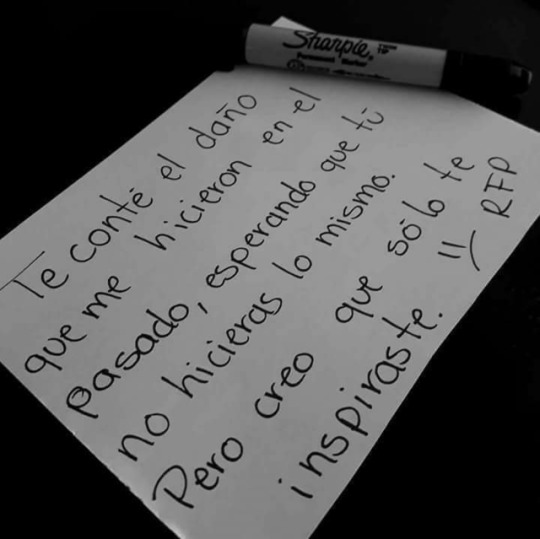 Sharpie
Permanent Marker
Te conté el daño
que me hicieron en el
pasado, esperando que tú
no hicieras lo mismo.
Pero creo que sólo te
inspiraste. =(
RFP